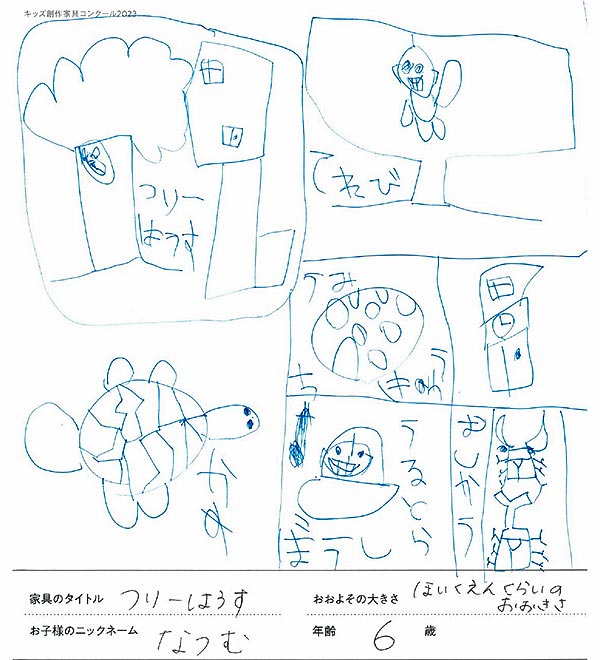 キッズ創作家具コンクール2023
つリー
はうす
てれび
かめ
うるとら
ぼうし
家具のタイトル つリーはうす
おおよその大きさ ほいくえんくらいの
おおきさ
お子様のニックネーム なつむ
年齢 6 歳